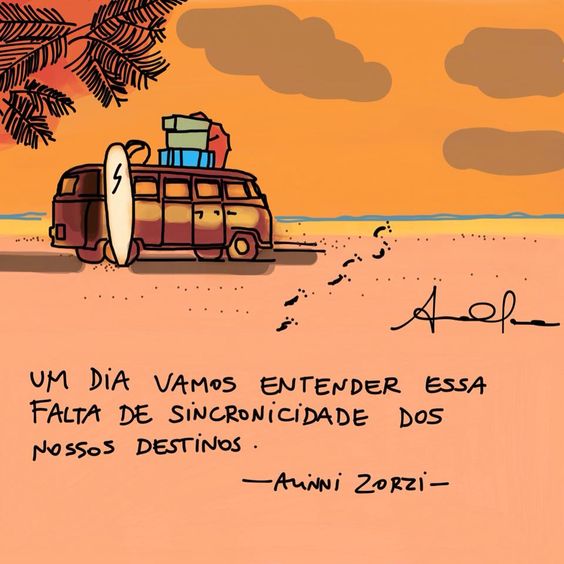 UM DIA VAMOS ENTENDER ESSA
FALTA DE SINCRONICIDADE DOS
NOSSOS DESTINOS.
—ALINNI ZORZI—